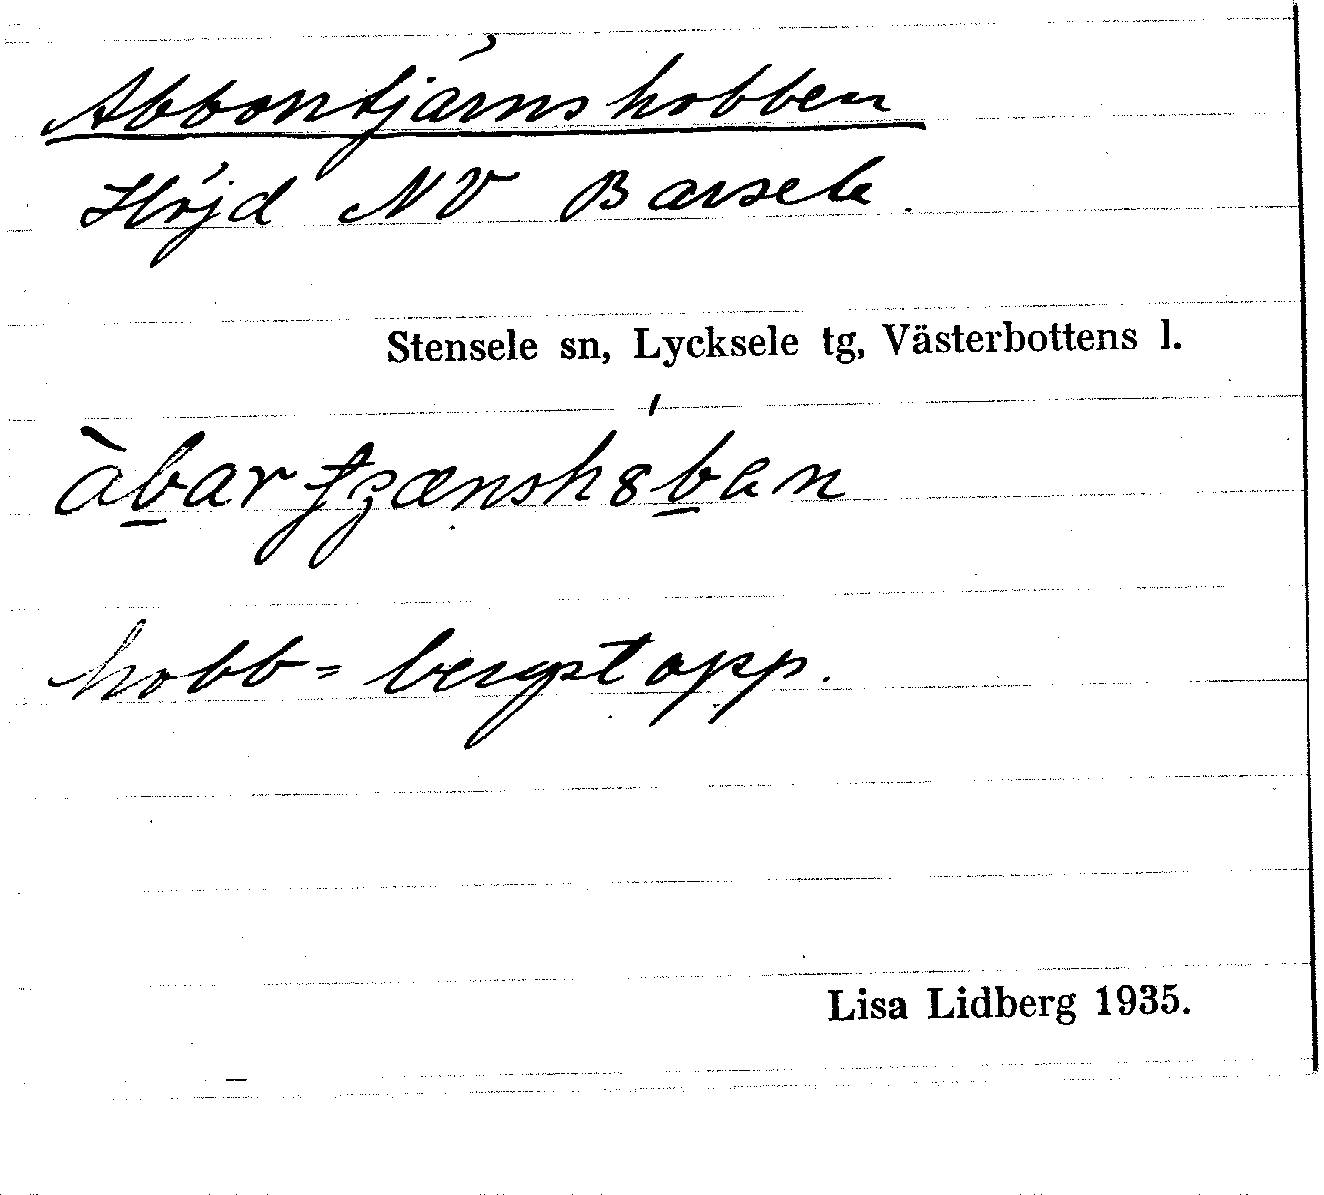 Abborrtjärnshobben
Höjd NV Barsele.
Stensele sn, Lycksele tg, Västerbottens l.
hobb = bergstopp.
Lisa Lidberg 1935.